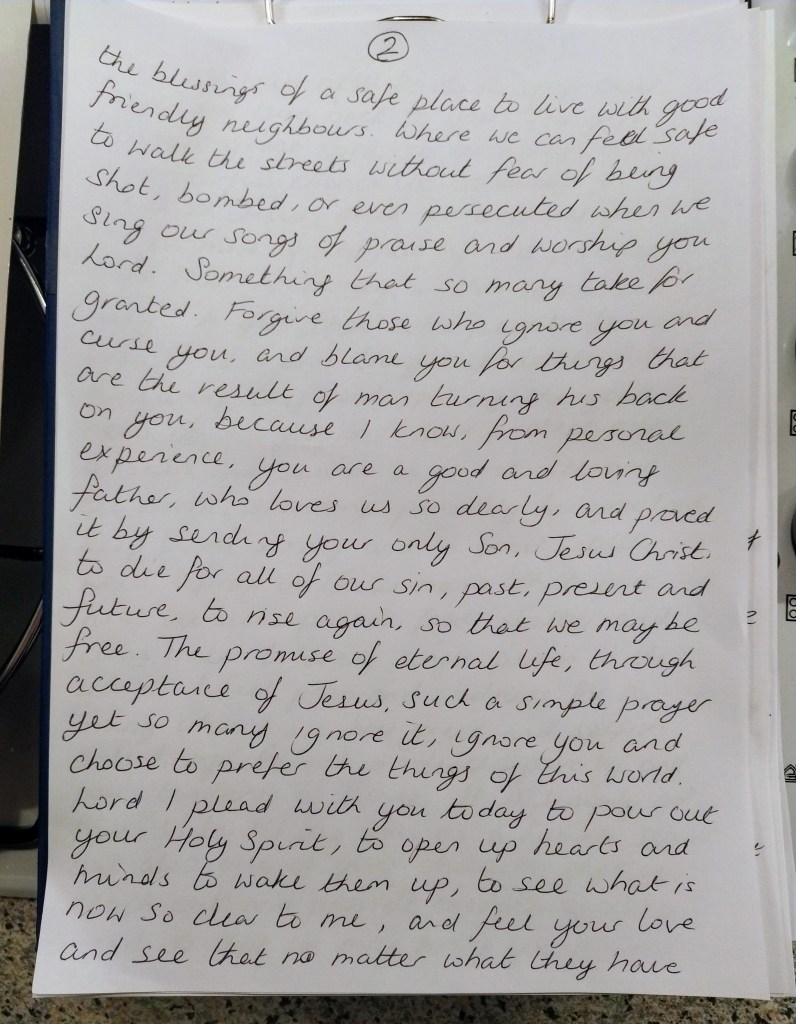 2
the blessings of a safe place to live with good
friendly neighbours. Where we can feel safe
to walk the streets without fear of being
shot, bombed, or even persecuted when we
sing our songs of praise and worship you
Lord. Something that so many take for
granted. Forgive those who ignore you and
curse you, and blame you for things that
are the result of man turning his back
on you, because I know, from personal
experience, you are a good and loving
father, who loves us so dearly, and proved
it by sending your only Son, Jesus Christ.
to die for all of our sin, past, present and
future, to rise again, so that we may be
free. The promise of eternal life, through
acceptance of Jesus, such a simple prayer
yet so many ignore it, ignore you and
choose to prefer the things of this world.
Lord I plead with you today to pour out
your Holy Spirit, to open up hearts and
minds to wake them up, to see what is
now so clear to me, and feel your love
and see that no matter what they have